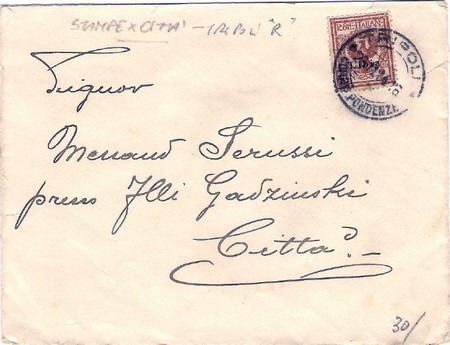 STAMPE X CITTÀ - TRIPOLI "R"
POSTE ITALIANE
TRIPOLI
PONDENZE
Signor
Messaud Serussi
presso Flli Gadzinski
Città
30/